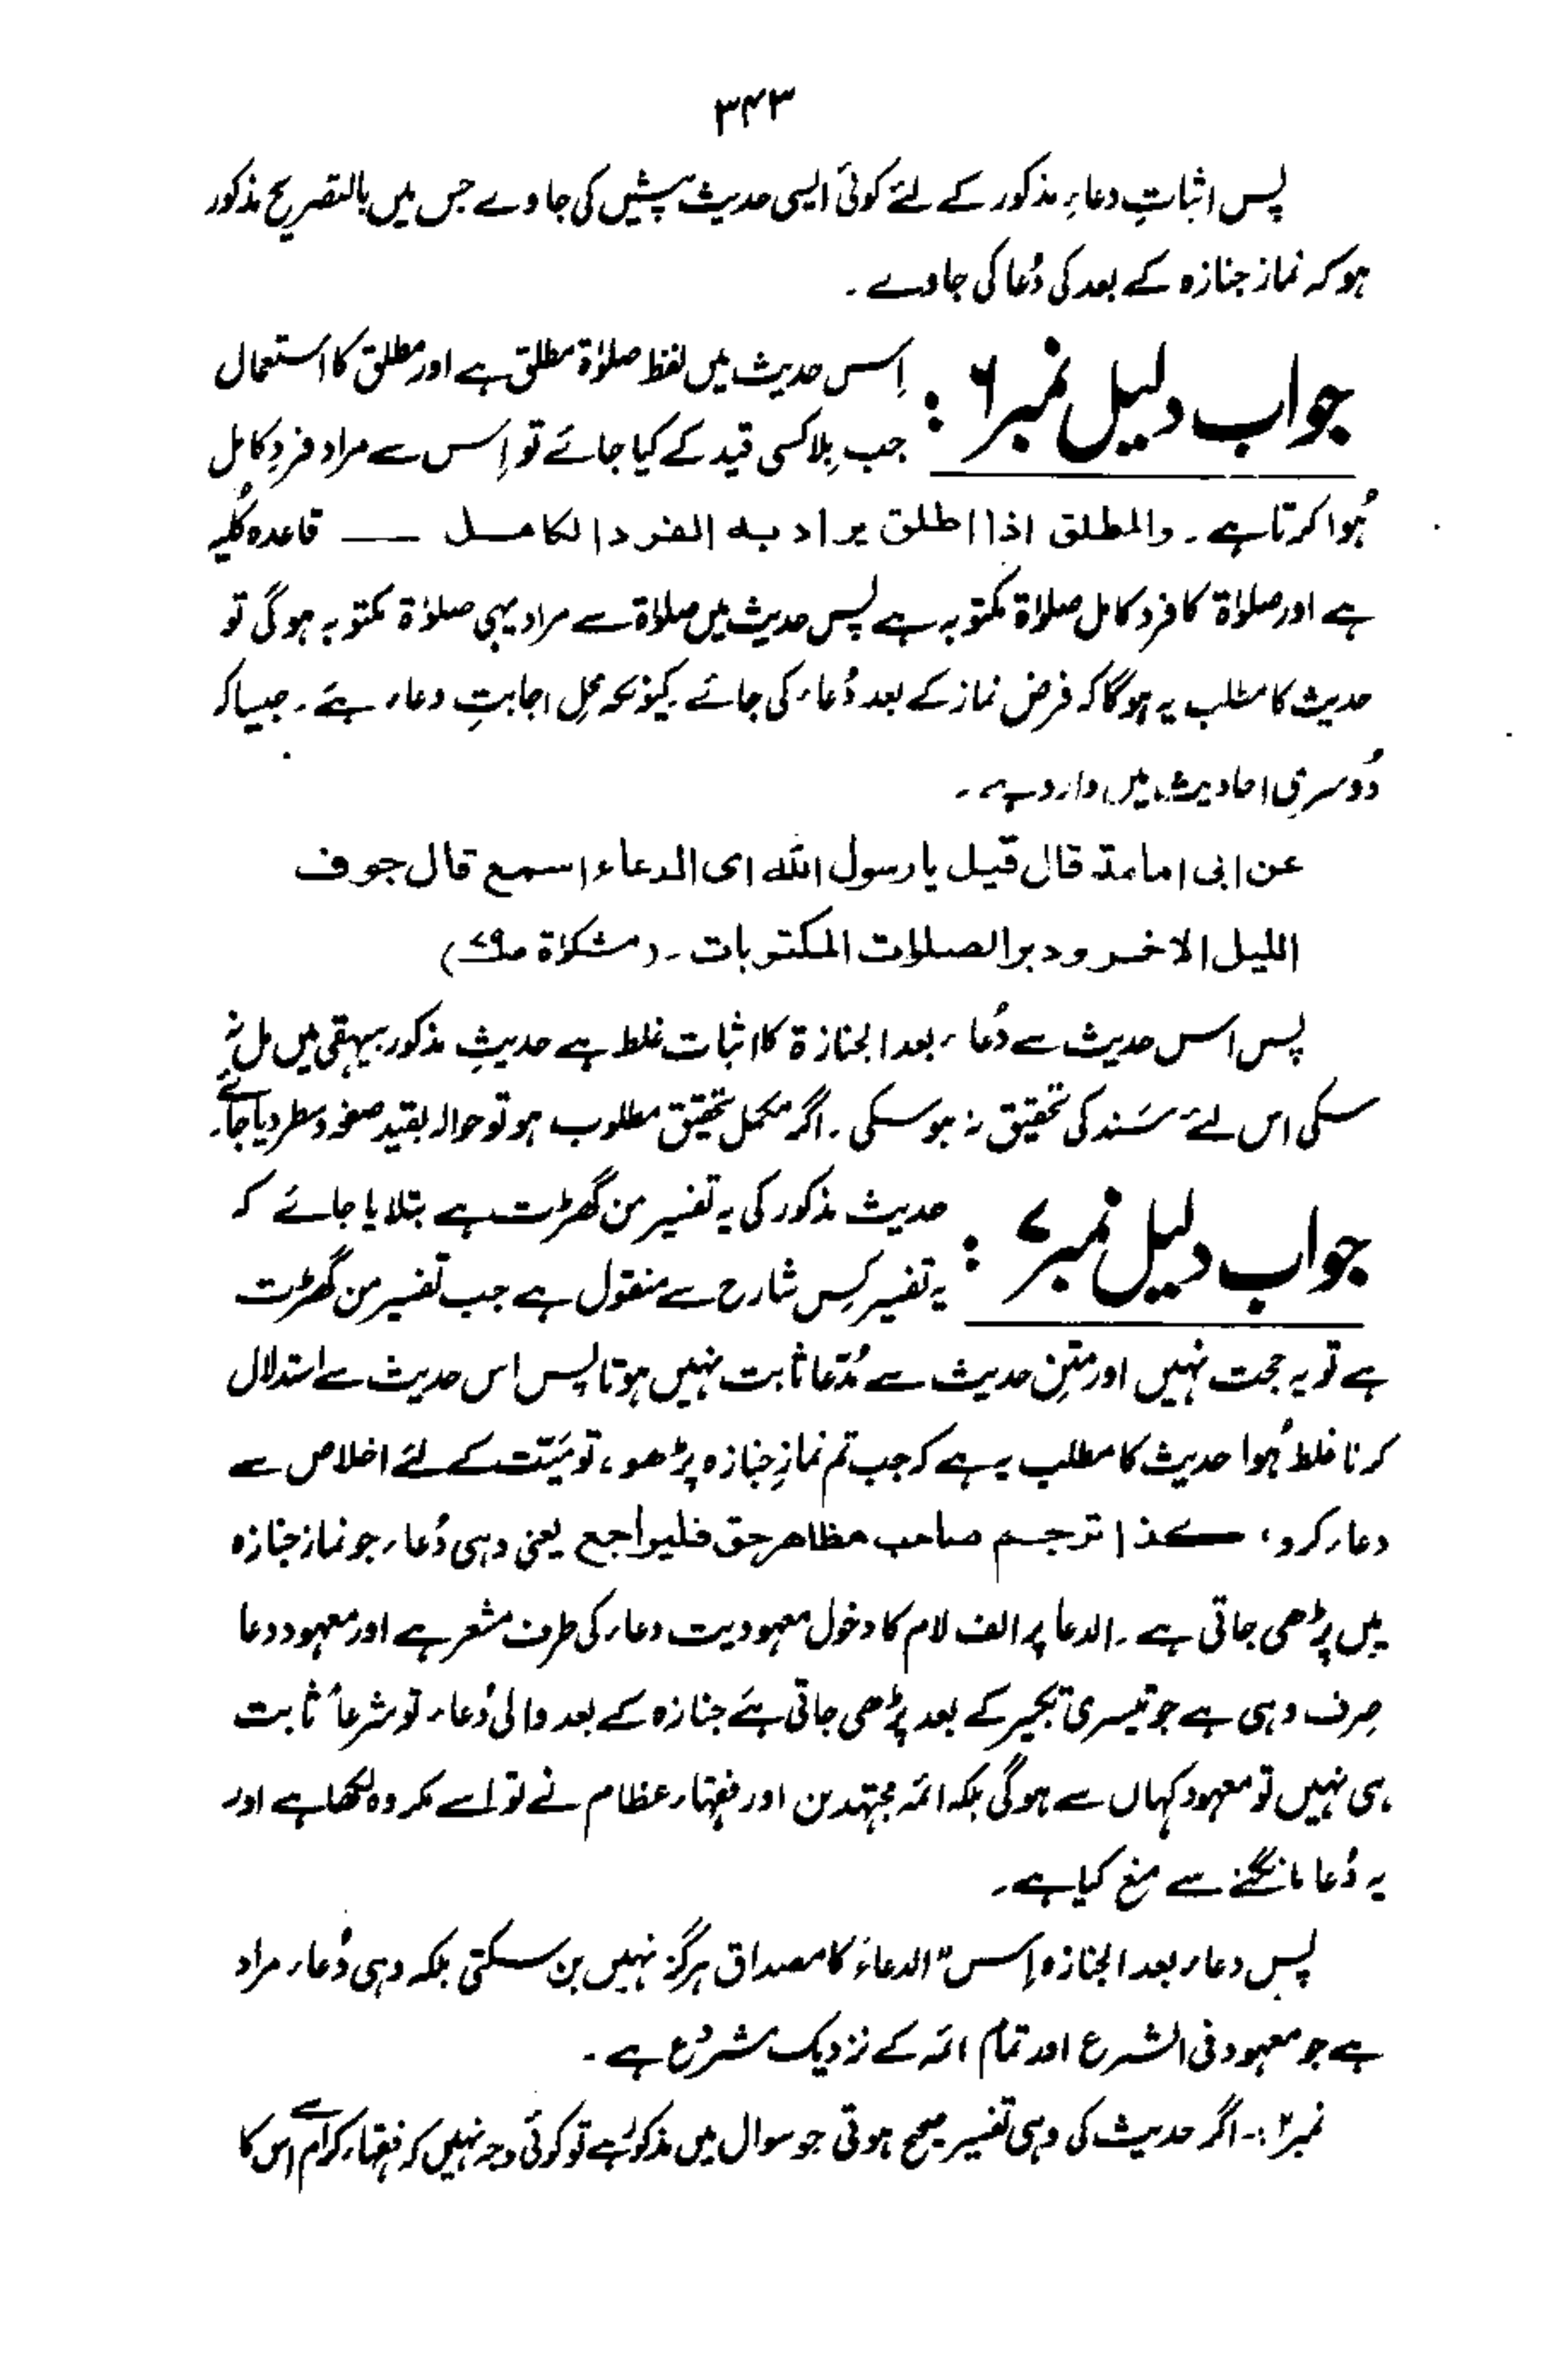 ۳۴۳
پس اثباتِ دعاءِ مذکور کے لئے کوئی ایسی حدیث پیش کی جاوے جس میں بالتصریح مذکور
ہو کہ نماز جنازہ کے بعد کی دُعا کی جاوے ۔
جواب دلیل نمبر ۶ : اِس حدیث میں لفظ صلوٰۃ مطلق ہے اور مطلق کا استعمال
جب بِلا کسی قید کے کیا جائے تو اِس سے مراد فردِ کامل
ہُوا کرتا ہے ۔ والمطلق اذا اطلق یراد بہ الفرد الکامل — قاعدہ کُلیہ
ہے اور صلوٰۃ کا فرد کامل صلوٰۃ مکتوبہ ہے پس حدیث میں صلوٰۃ سے مراد یہی صلوٰۃ مکتوبہ ہوگی تو
حدیث کا مطلب یہ ہوگا کہ فرض نماز کے بعد دُعاء کی جائے کیونکہ محلِ اجابتِ دعاء ہے ۔ جیسا کہ
دُوسری احادیث میں وارد ہے ۔
عن ابی امامۃ قال قیل یا رسول اللہ ای الدعاء اسمع قال جوف
اللیل الاخر ودبر الصلوٰت المکتوبات ۔ (مشکوٰۃ ص۸۹)
پس اس حدیث سے دُعاء بعد الجنازۃ کا اثبات غلط ہے حدیثِ مذکور بیہقی میں مل نہ
سکی اس لئے سَند کی تحقیق نہ ہو سکی ۔ اگر مکمل تحقیق مطلوب ہو تو حوالہ بقید صفحہ و سطر دیا جائے ۔
جواب دلیل نمبر ۷ : حدیث مذکور کی یہ تفسیر من گھڑت ہے بتلایا جائے کہ
یہ تفسیر کِس شارح سے منقول ہے جب تفسیر من گھڑت
ہے تو یہ حجت نہیں اور متنِ حدیث سے مُدّعا ثابت نہیں ہوتا پس اس حدیث سے استدلال
کرنا غلط ہُوا حدیث کا مطلب یہ ہے کہ جب تم نمازِ جنازہ پڑھو ، تو میّت کے لئے اخلاص سے
دعاء کرو ، کذا ترجم صاحب مظاهر حق فلیراجع یعنی وہی دُعاء جو نماز جنازہ
میں پڑھی جاتی ہے ۔ الدعا پر الف لام کا دخول معہودیت دعاء کی طرف مشعر ہے اور معہود دعا
صِرف وہی ہے جو تیسری تکبیر کے بعد پڑھی جاتی ہے جنازہ کے بعد والی دُعاء تو شرعاً ثابت
ہی نہیں تو معہود کہاں سے ہوگی بلکہ ائمہ مجتہدین اور فقہاء عظام نے تو اسے مکروہ لکھا ہے اور
یہ دُعا مانگنے سے منع کیا ہے ۔
پس دعاء بعد الجنازہ اِس "الدعاء" کا مصداق ہرگز نہیں بن سکتی بلکہ وہی دُعاء مراد
ہے جو معہود فی الشرع اور تمام ائمہ کے نزدیک مشرُوع ہے ۔
نمبر۲ :- اگر حدیث کی وہی تفسیر صحیح ہوتی جو سوال میں مذکور ہے تو کوئی وجہ نہیں کہ فقہاء کرام اس کا